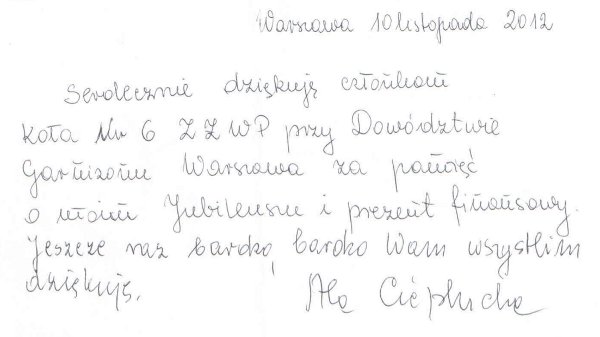 Warszawa 10 listopada 2012
Serdecznie dziękuję członkom
Koła Nr 6 ZŻWP przy Dowództwie
Garnizonu Warszawa za pamięć
o moim Jubileuszu i prezent finansowy.
Jeszcze raz bardzo, bardzo Wam wszystkim
dziękuję.